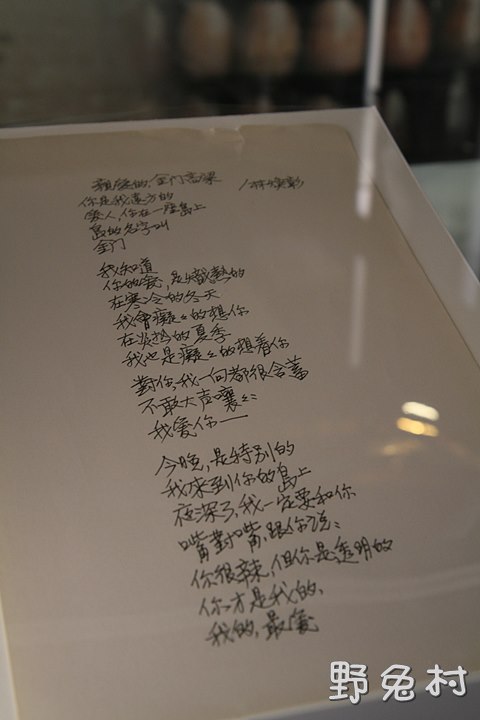 親愛的,金门高粱 /林煥彰
你是我遠方的
愛人,你在一座島上
島的名字叫
金门
我知道
你的愛,是熾熱的
在寒冷的冬天
我會癡々的想你
在炎热的夏季
我也是癡々的想着你
對你,我一向都很含蓄
不敢大声嚷々:
我爱你——
今晚,是特别的
我来到你的島上
夜深了,我一定要和你
嘴對嘴,跟你说:
你很辣,但你是透明的
你才是我的,
我的,最爱
野兔村